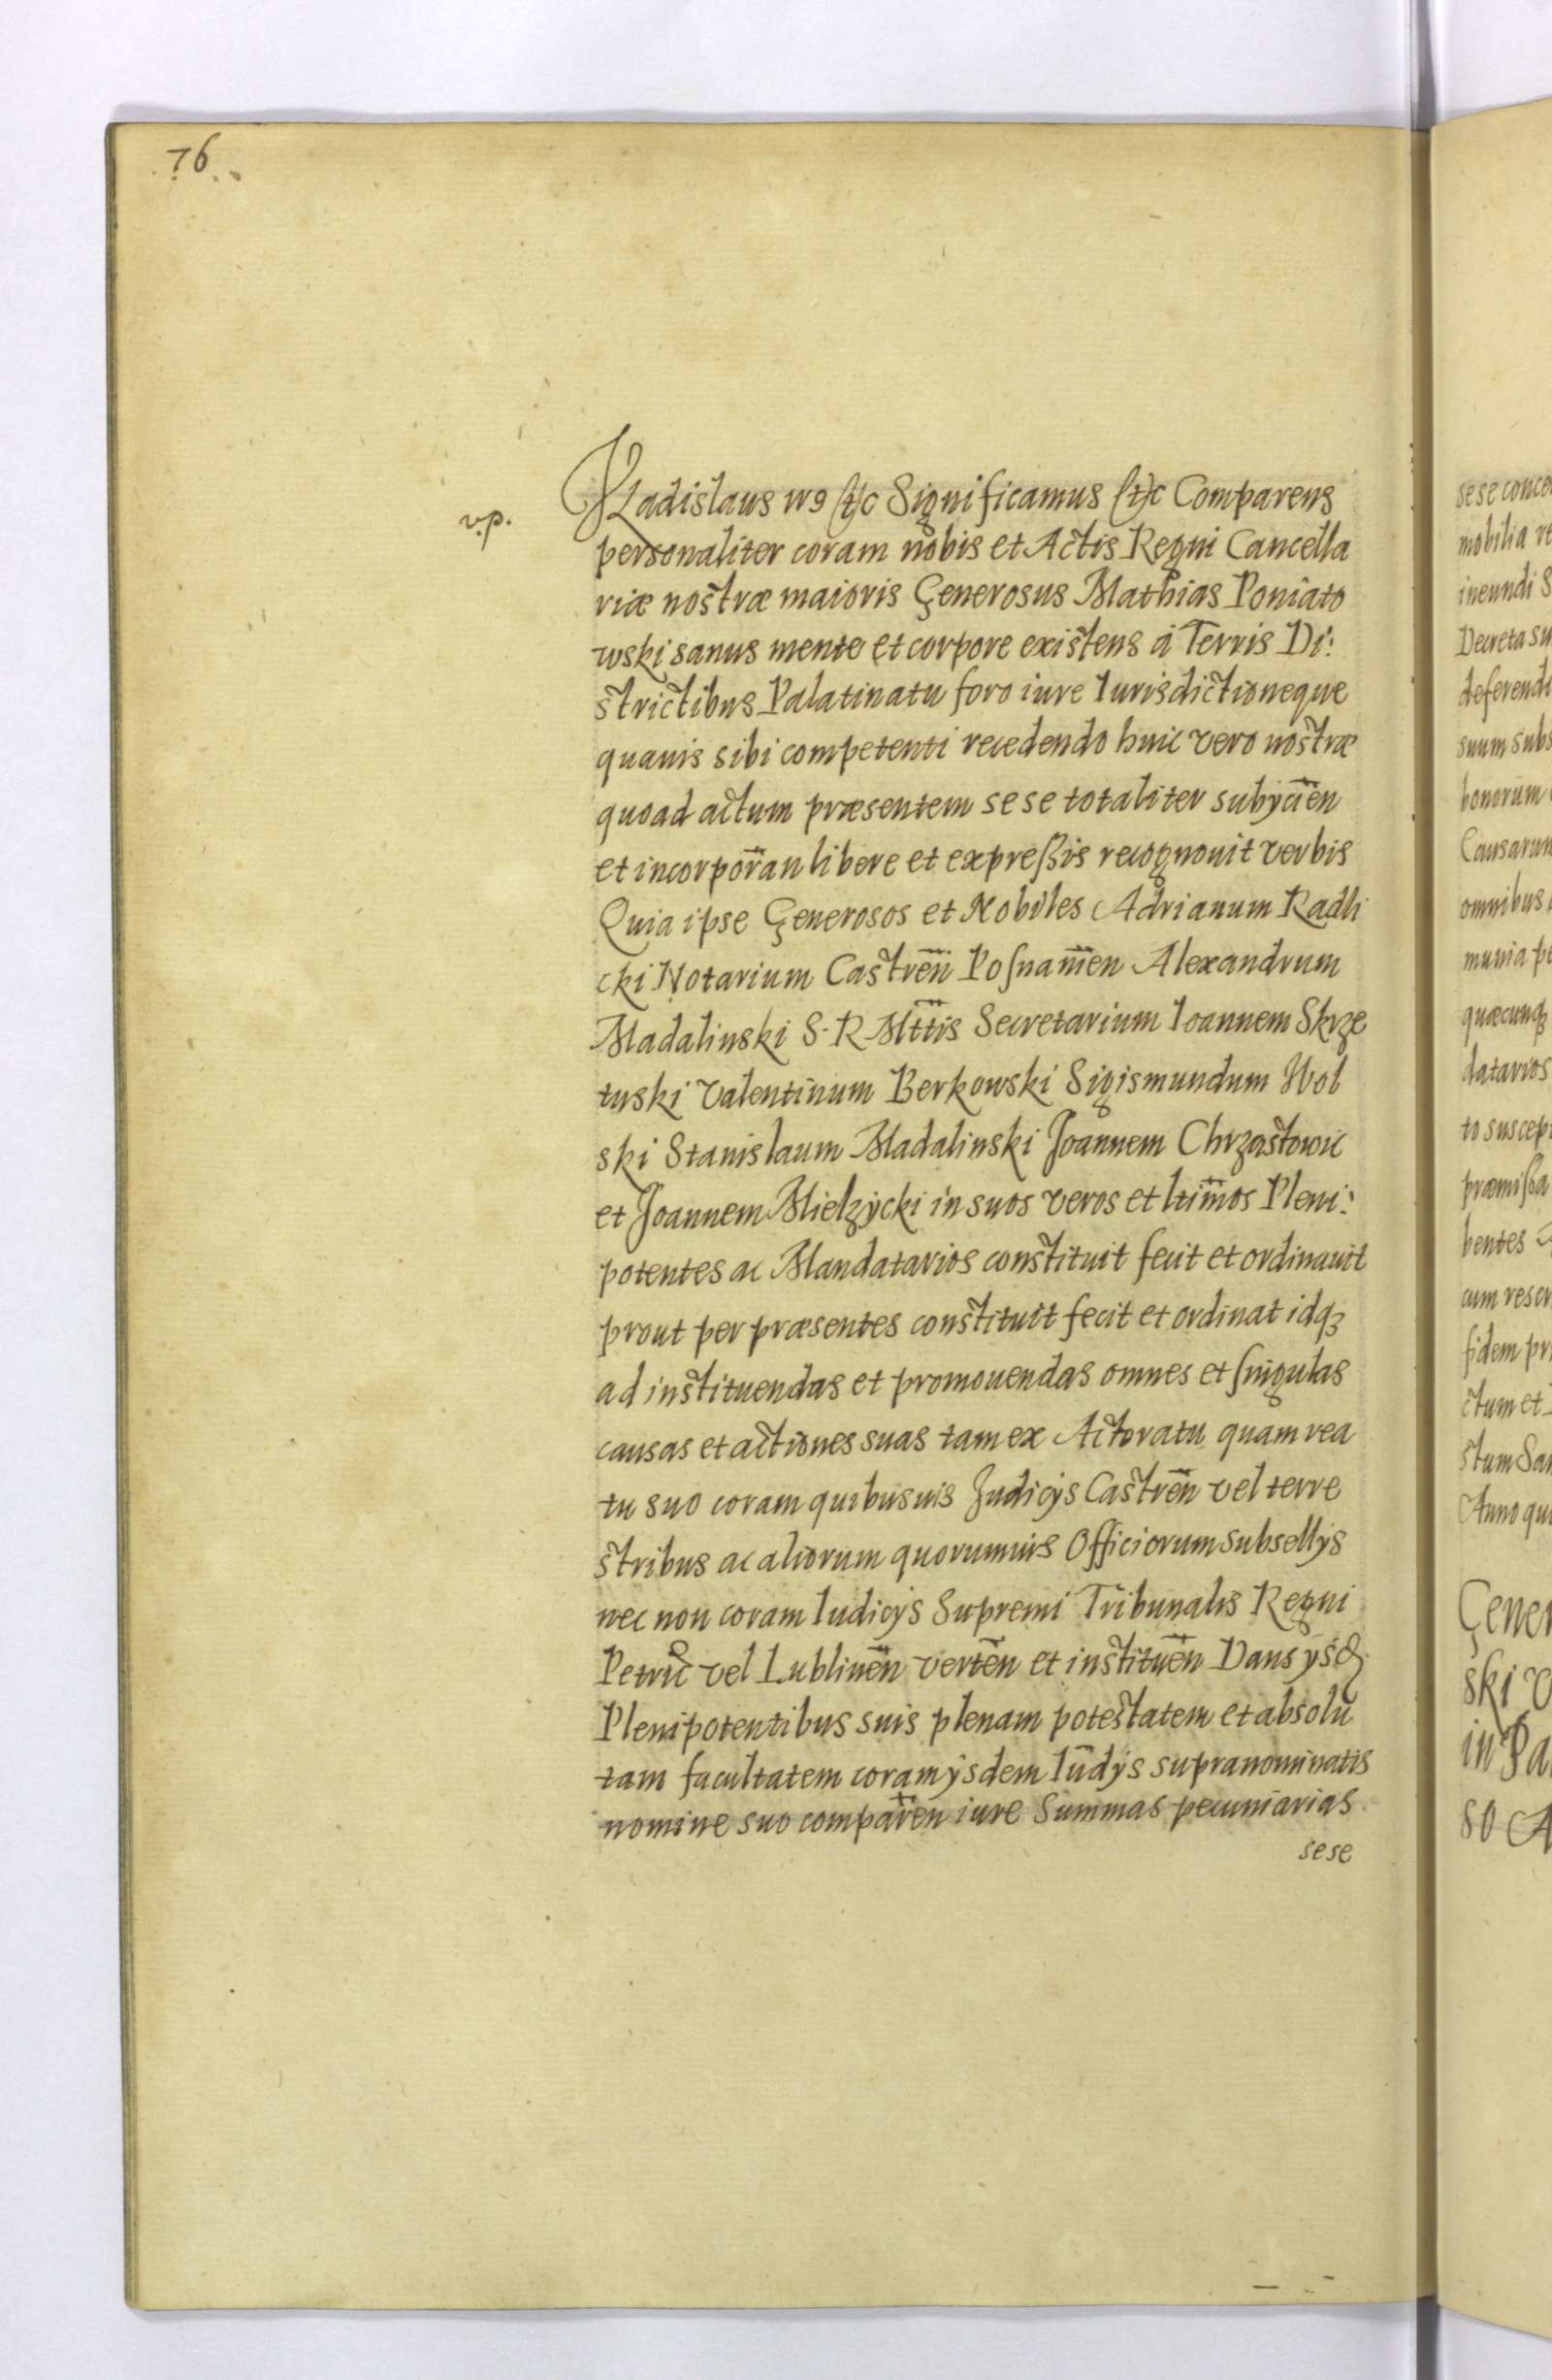 76
v.p.
Vladislaus IV9 (t)c Significamus (t)c Comparens
personaliter coram nobis et Actis Regni Cancella
riæ nostræ maioris Generosus Mathias Poniato
wski sanus mente et corpore existens à Terris Di:
strictibus Palatinatu foro iure Iurisdictioneque
quauis sibi competenti recedendo huic vero nostræ
quoad actum præsentem sese totaliter subÿcien̄
et incorporan̄ libere et expreßis recognouit verbis
Quia ipse Generosos et Nobiles Adrianum Radli
cki Notarium Castren̄ Posnanien̄ Alexandrum
Madalinski S. R. Mttis Secretarium Ioannem Skrze
tuski Valentinum Berkowski Sigismundum Wol
ski Stanislaum Madalinski Joannem Chrzastowic
et Joannem Mielzÿcki in suos veros et ltimos Pleni:
potentes ac Mandatarios constituit fecit et ordinauit
prout per præsentes constituit fecit et ordinat idqȝ
ad instituendas et promouendas omnes et singulas
causas et actiones suas tam ex Actoratu quam rea
tu suo coram quibusuis Judicÿs Castren̄ vel terre
stribus ac aliorum quorumuis Officiorum subsellÿs
nec non coram Iudicÿs Supremi Tribunalis Regni
Petric vel Lublinen̄ verten̄ et instituen̄ Dans ÿsd
Plenipotentibus suis plenam potestatem et absolu
tam facultatem coram ÿsdem Iudÿs supranominatis
nomine suo comparen̄ iure Summas pecuniarias
sese
sese conce
mobilia re
ineundi S
Decreta su
deferendi
suum subs
bonorum
Causarum
omnibus
munia pe
quæcunqȝ
datarios
to suscep
præmißa
bentes
cum rescr
fidem pr
ctum et
stum San
Anno qu
Gener
ski v
in Pa
so A